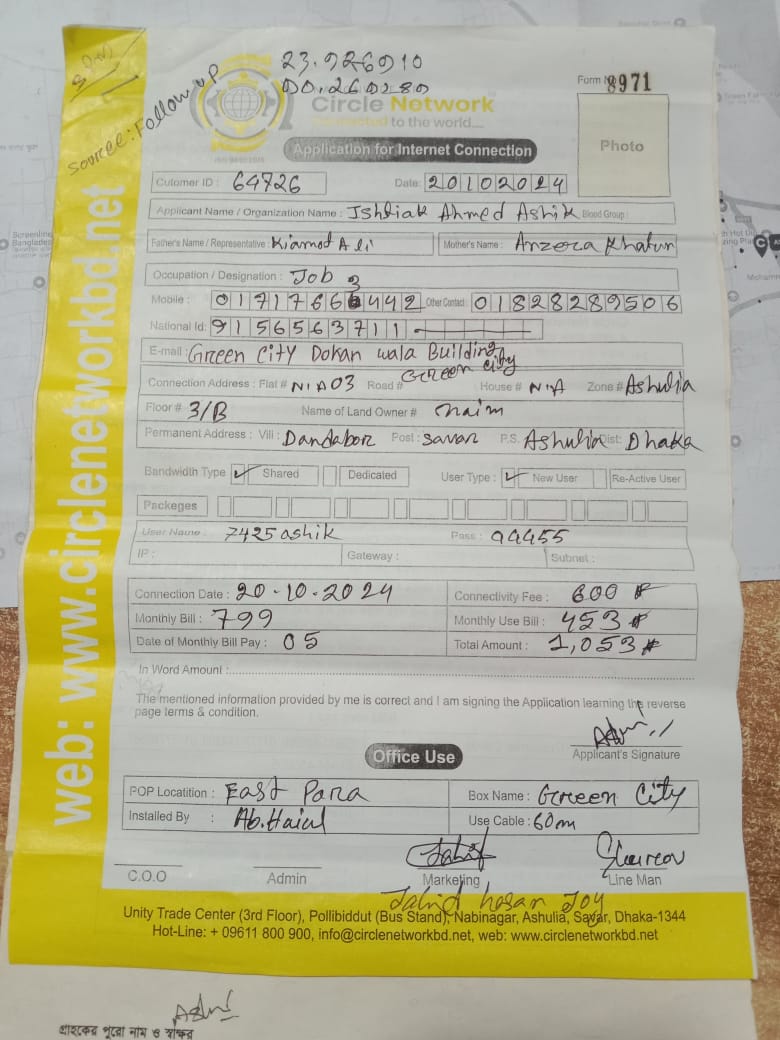 23.926910
90.260280
Source: Follow up
Form No 8971
Circle Network
Connected to the world....
Application for Internet Connection
Photo
Cutomer ID : 64726
Date: 20102024
Applicant Name / Organization Name : Ishtiak Ahmed Ashik Blood Group :
Father's Name / Representative : Kiamot Ali Mother's Name : Anzera Khatun
Occupation / Designation : Job
Mobile : 01717663442 Other Contact 01828289506
National Id: 9156563711
E-mail : Green City Dokan wala Building
Connection Address : Flat # N/A03 Road # Green City House # N/A Zone # Ashulia
Floor # 3/B Name of Land Owner # Naim
Permanent Address : Vill : Dandabor Post : Savar P.S. Ashulia Dist: Dhaka
Bandwidth Type ✓ Shared Dedicated User Type : ✓ New User Re-Active User
Packeges
User Name : 7425ashik Pass : 94455
IP : Gateway : Subnet :
Connection Date : 20-10-2024 Connectivity Fee : 600
Monthly Bill : 799 Monthly Use Bill : 453
Date of Monthly Bill Pay : 05 Total Amount : 1,053
In Word Amount :
The mentioned information provided by me is correct and I am signing the Application learning the reverse
page terms & condition.
Applicant's Signature
Office Use
POP Locatition : East Para Box Name : Green City
Installed By : Ab. Halal Use Cable : 60m
C.O.O Admin Marketing Line Man
Jahid hasan Joy
Unity Trade Center (3rd Floor), Pollibiddut (Bus Stand), Nabinagar, Ashulia, Savar, Dhaka-1344
Hot-Line: + 09611 800 900, info@circlenetworkbd.net, web: www.circlenetworkbd.net
web: www.circlenetworkbd.net
গ্রাহকের পুরো নাম ও স্বাক্ষর